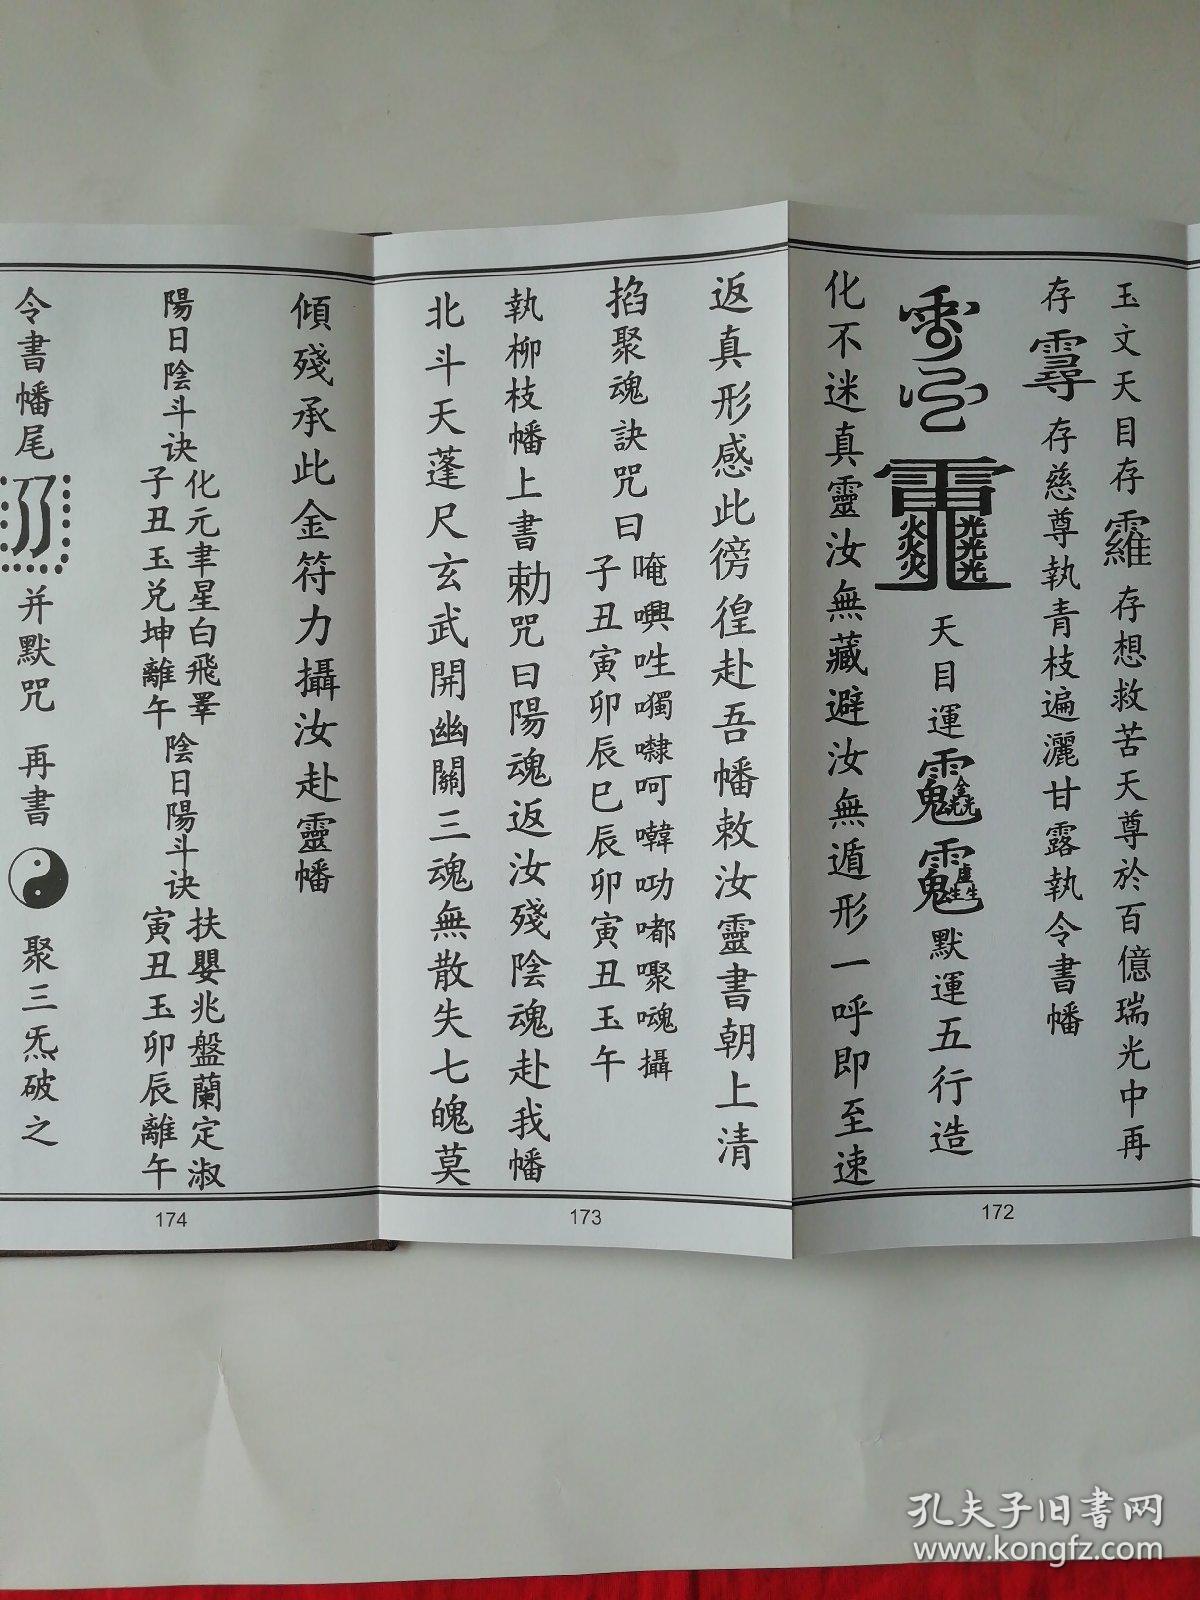 玉文天目存䨏存想救苦天尊於百億瑞光中再
存䨙存慈尊執青枝遍灑甘露執令書幡
天目運
默運五行造
化不迷真靈汝無藏避汝無遁形一呼即至速
172
返真形感此徬徨赴吾幡敕汝靈書朝上清
掐聚魂訣咒曰
唵㗲㕽噣㘑呵㘚㕸嘟㗱嗗攝
子丑寅卯辰巳辰卯寅丑玉午
執柳枝幡上書勅咒曰陽魂返汝殘陰魂赴我幡
北斗天蓬尺玄武開幽關三魂無散失七魄莫
173
傾殘承此金符力攝汝赴靈幡
陽日陰斗诀
化元聿星白飛睪
子丑玉兑坤離午
陰日陽斗诀
扶嬰兆盤蘭定淑
寅丑玉卯辰離午
令書幡尾
并默咒
再書
聚三炁破之
174
孔夫子旧書网
www.kongfz.com